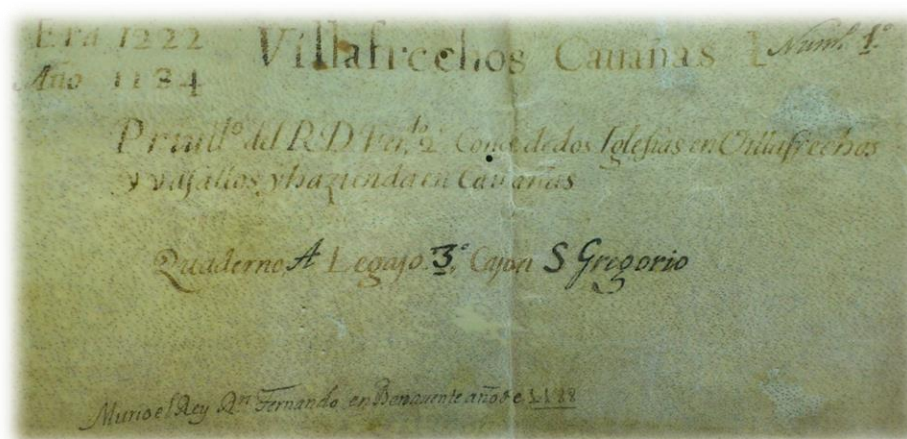 Era 1222 Villafrechos Cauañas Num.º 1.º
Año 1184
Priuill.º del R D. Fer.do 2.º Conçede dos Iglesias en Villafrechos
y vasallos y hazienda en Cauañas
Quaderno A Legajo 3.º Cajon S Gregorio
Murio el Rey Dn Fernando en Benauente año de 1188